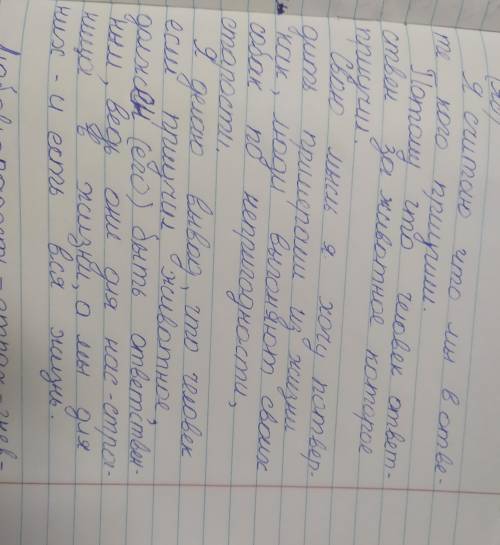 (31)
Я считаю что мы в отве-
те кого приучим.
Потому что человек ответ-
ствен за животное которое
приучил.
Свою мысль я хочу потвер-
дить примерами из жизни
как, люди выгоняют своих
собак по непригодности,
старости.
Я делаю вывод, что человек
если приучил животное,
должен (его) быть ответствен-
ным, ведь они для нас - стра-
ница жизни, а мы для
них - и есть вся жизнь.